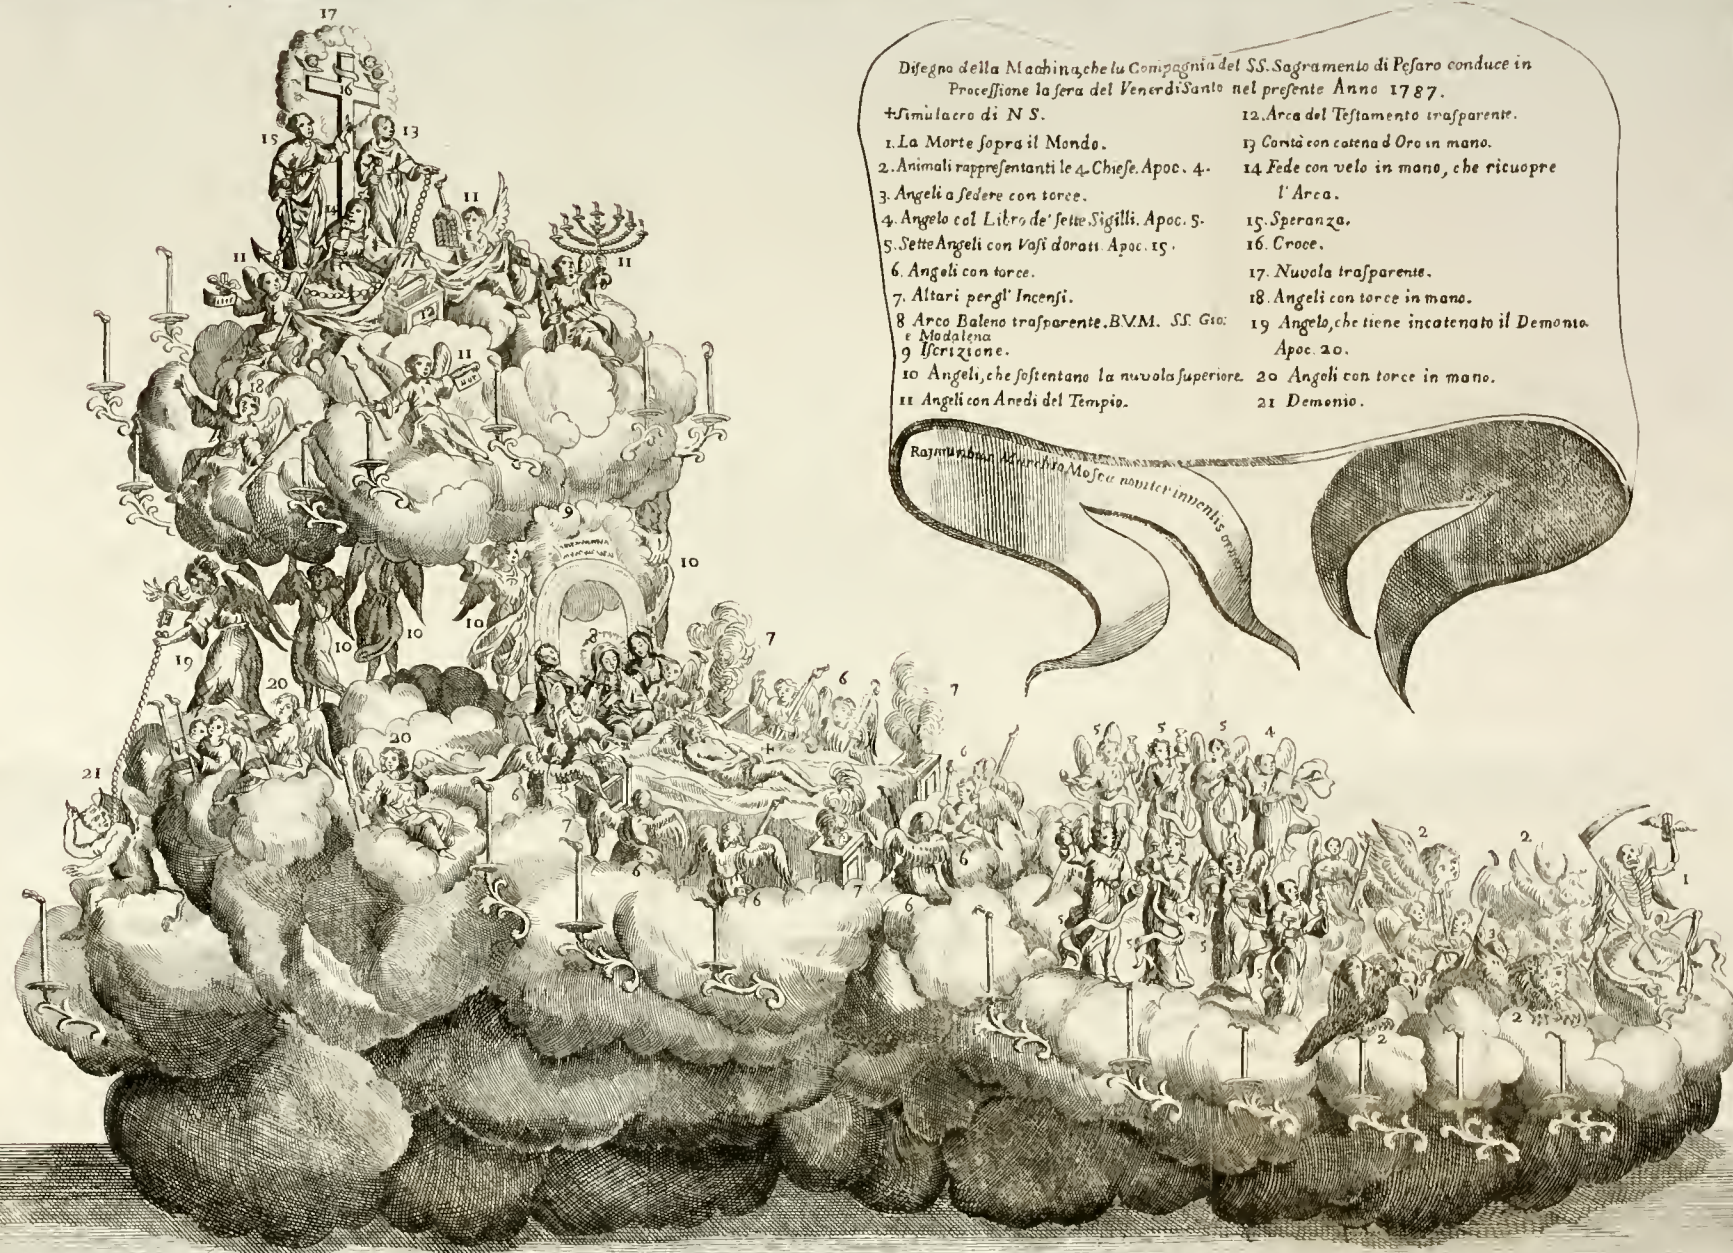 Disegno della Machina, che la Compagnia del SS. Sagramento di Pesaro conduce in
Processione la sera del Venerdi Santo nel presente Anno 1787.
+ Simulacro di N S.
1. La Morte sopra il Mondo.
2. Animali rappresentanti le 4. Chiese. Apoc. 4.
3. Angeli a sedere con torce.
4. Angelo col Libro de' sette Sigilli. Apoc. 5.
5. Sette Angeli con Vasi dorati. Apoc. 15.
6. Angeli con torce.
7. Altari per gl' Incensi.
8 Arco Baleno trasparente. B.V.M. SS. Gio:
e Madalena
9 Iscrizione.
10 Angeli, che sostentano la nuvola superiore.
11 Angeli con Aredi del Tempio.
12. Arca del Testamento trasparente.
13 Carità con catena d Oro in mano.
14 Fede con velo in mano, che ricuopre
l' Arca.
15. Speranza.
16. Croce.
17. Nuvola trasparente.
18. Angeli con torce in mano.
19 Angelo, che tiene incatenato il Demonio.
Apoc. 20.
20 Angeli con torce in mano.
21 Demonio.
Raimundus Marchio Mosca noviter inventis
17
16
15
13
14
11
11
11
12
11
18
9
10
10
10
10
19
8
7
20
6
7
20
+
21
6
6
5
5
5
4
7
6
6
6
7
6
2
2
1
5
5
5
5
3
2
2